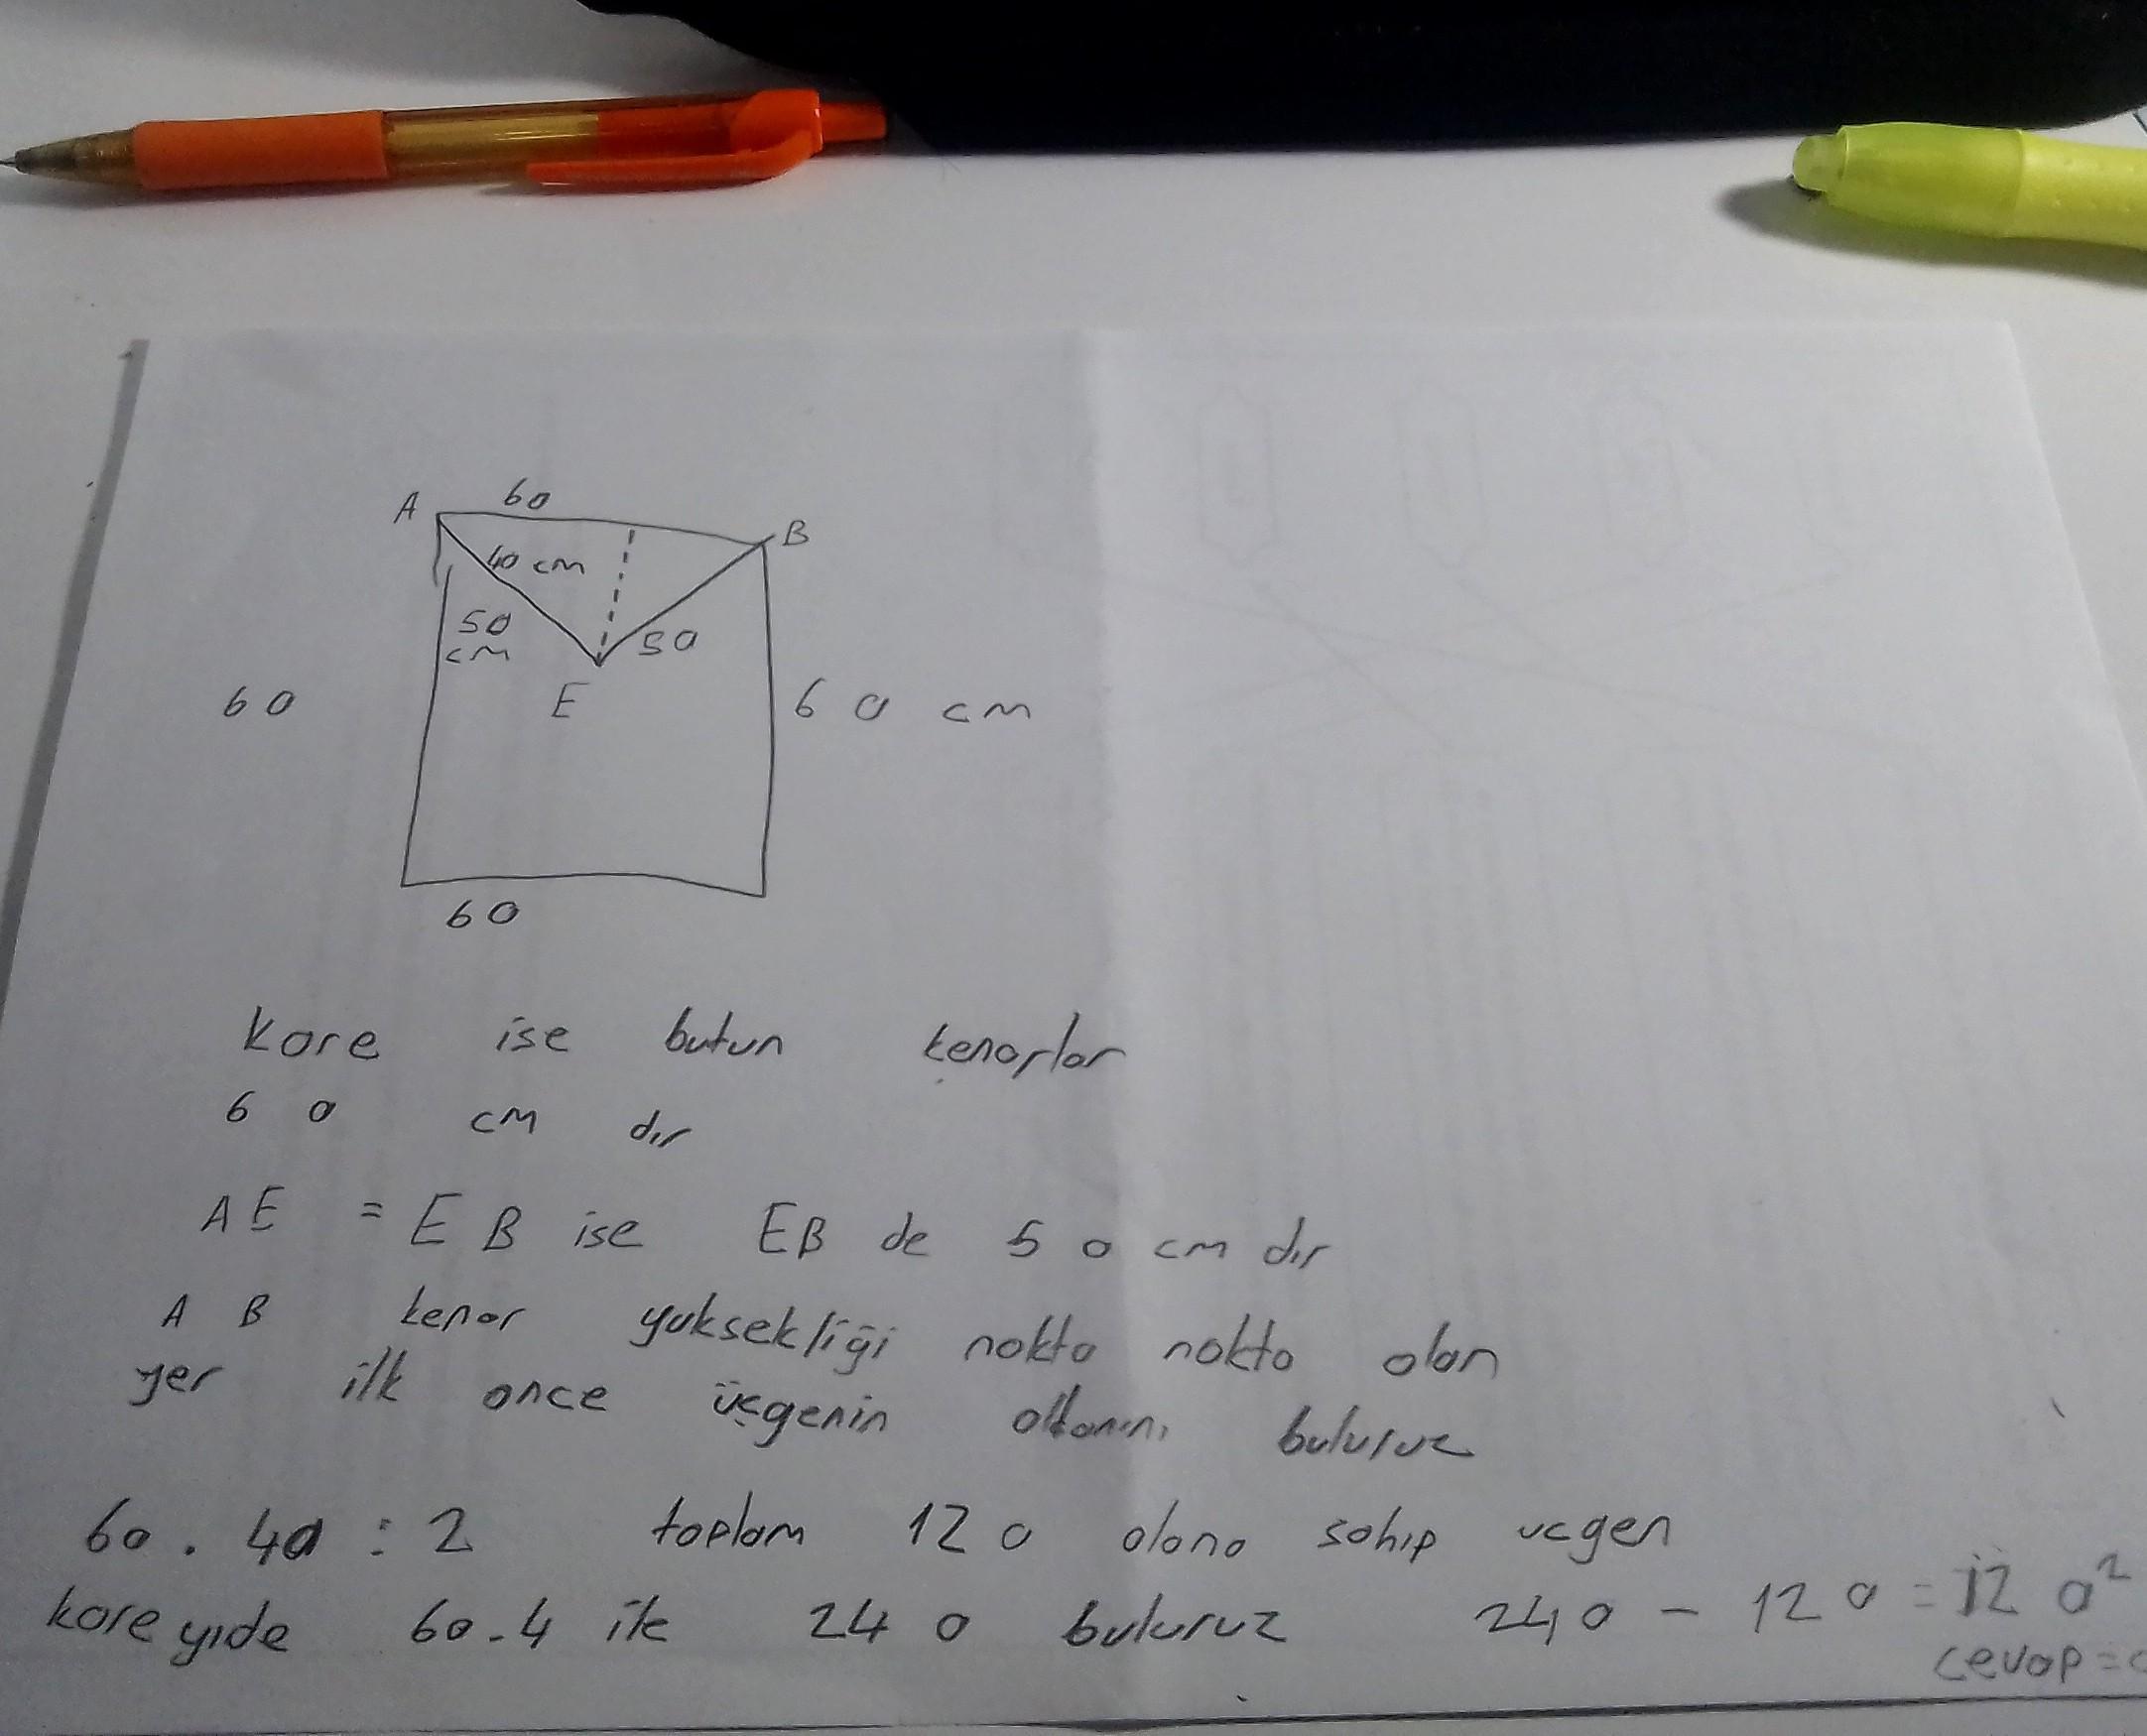 A 60 B
40 cm
50
cm 50
E
60 60 cm
60
kare ise butun kenarlar
60 cm dır
AE = EB ise EB de 50 cm dır
AB kenar yuksekliği nokta nokta olan
yer ilk once üçgenin alanını buluruz
60 . 40 : 2 toplam 120 alana sahip ucgen
kareyide 60.4 ile 240 buluruz 240 - 120 = 120²
cevap =